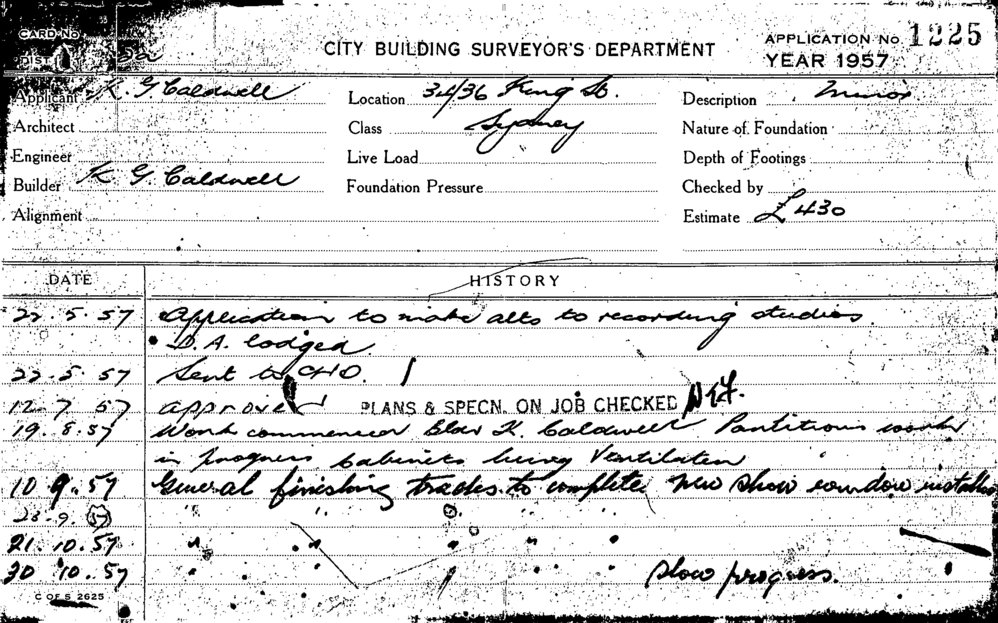 CARD No
DIST
CITY BUILDING SURVEYOR'S DEPARTMENT
APPLICATION No 1225
YEAR 1957
Applicant K. G. Caldwell
Location 34/36 King St.
Description Minor
Architect
Class Sydney
Nature of Foundation
Engineer
Live Load
Depth of Footings
Builder K G. Caldwell
Foundation Pressure
Checked by
Alignment
Estimate £430
DATE HISTORY
22.5.57 Application to make alts to recording studios
D.A. lodged
22.5.57 Sent to CHO.
12.7.57 approved PLANS & SPECN. ON JOB CHECKED
19.8.57 Work commenced Bldr K. Caldwell Partitions work
in progress Cabinets being Ventilated
10 9.57 General finishing trades to complete new show window installed
23.9.57 " " " "
21.10.57 " " " "
30 10.57 " " " " Slow progress.
C OF S 2625